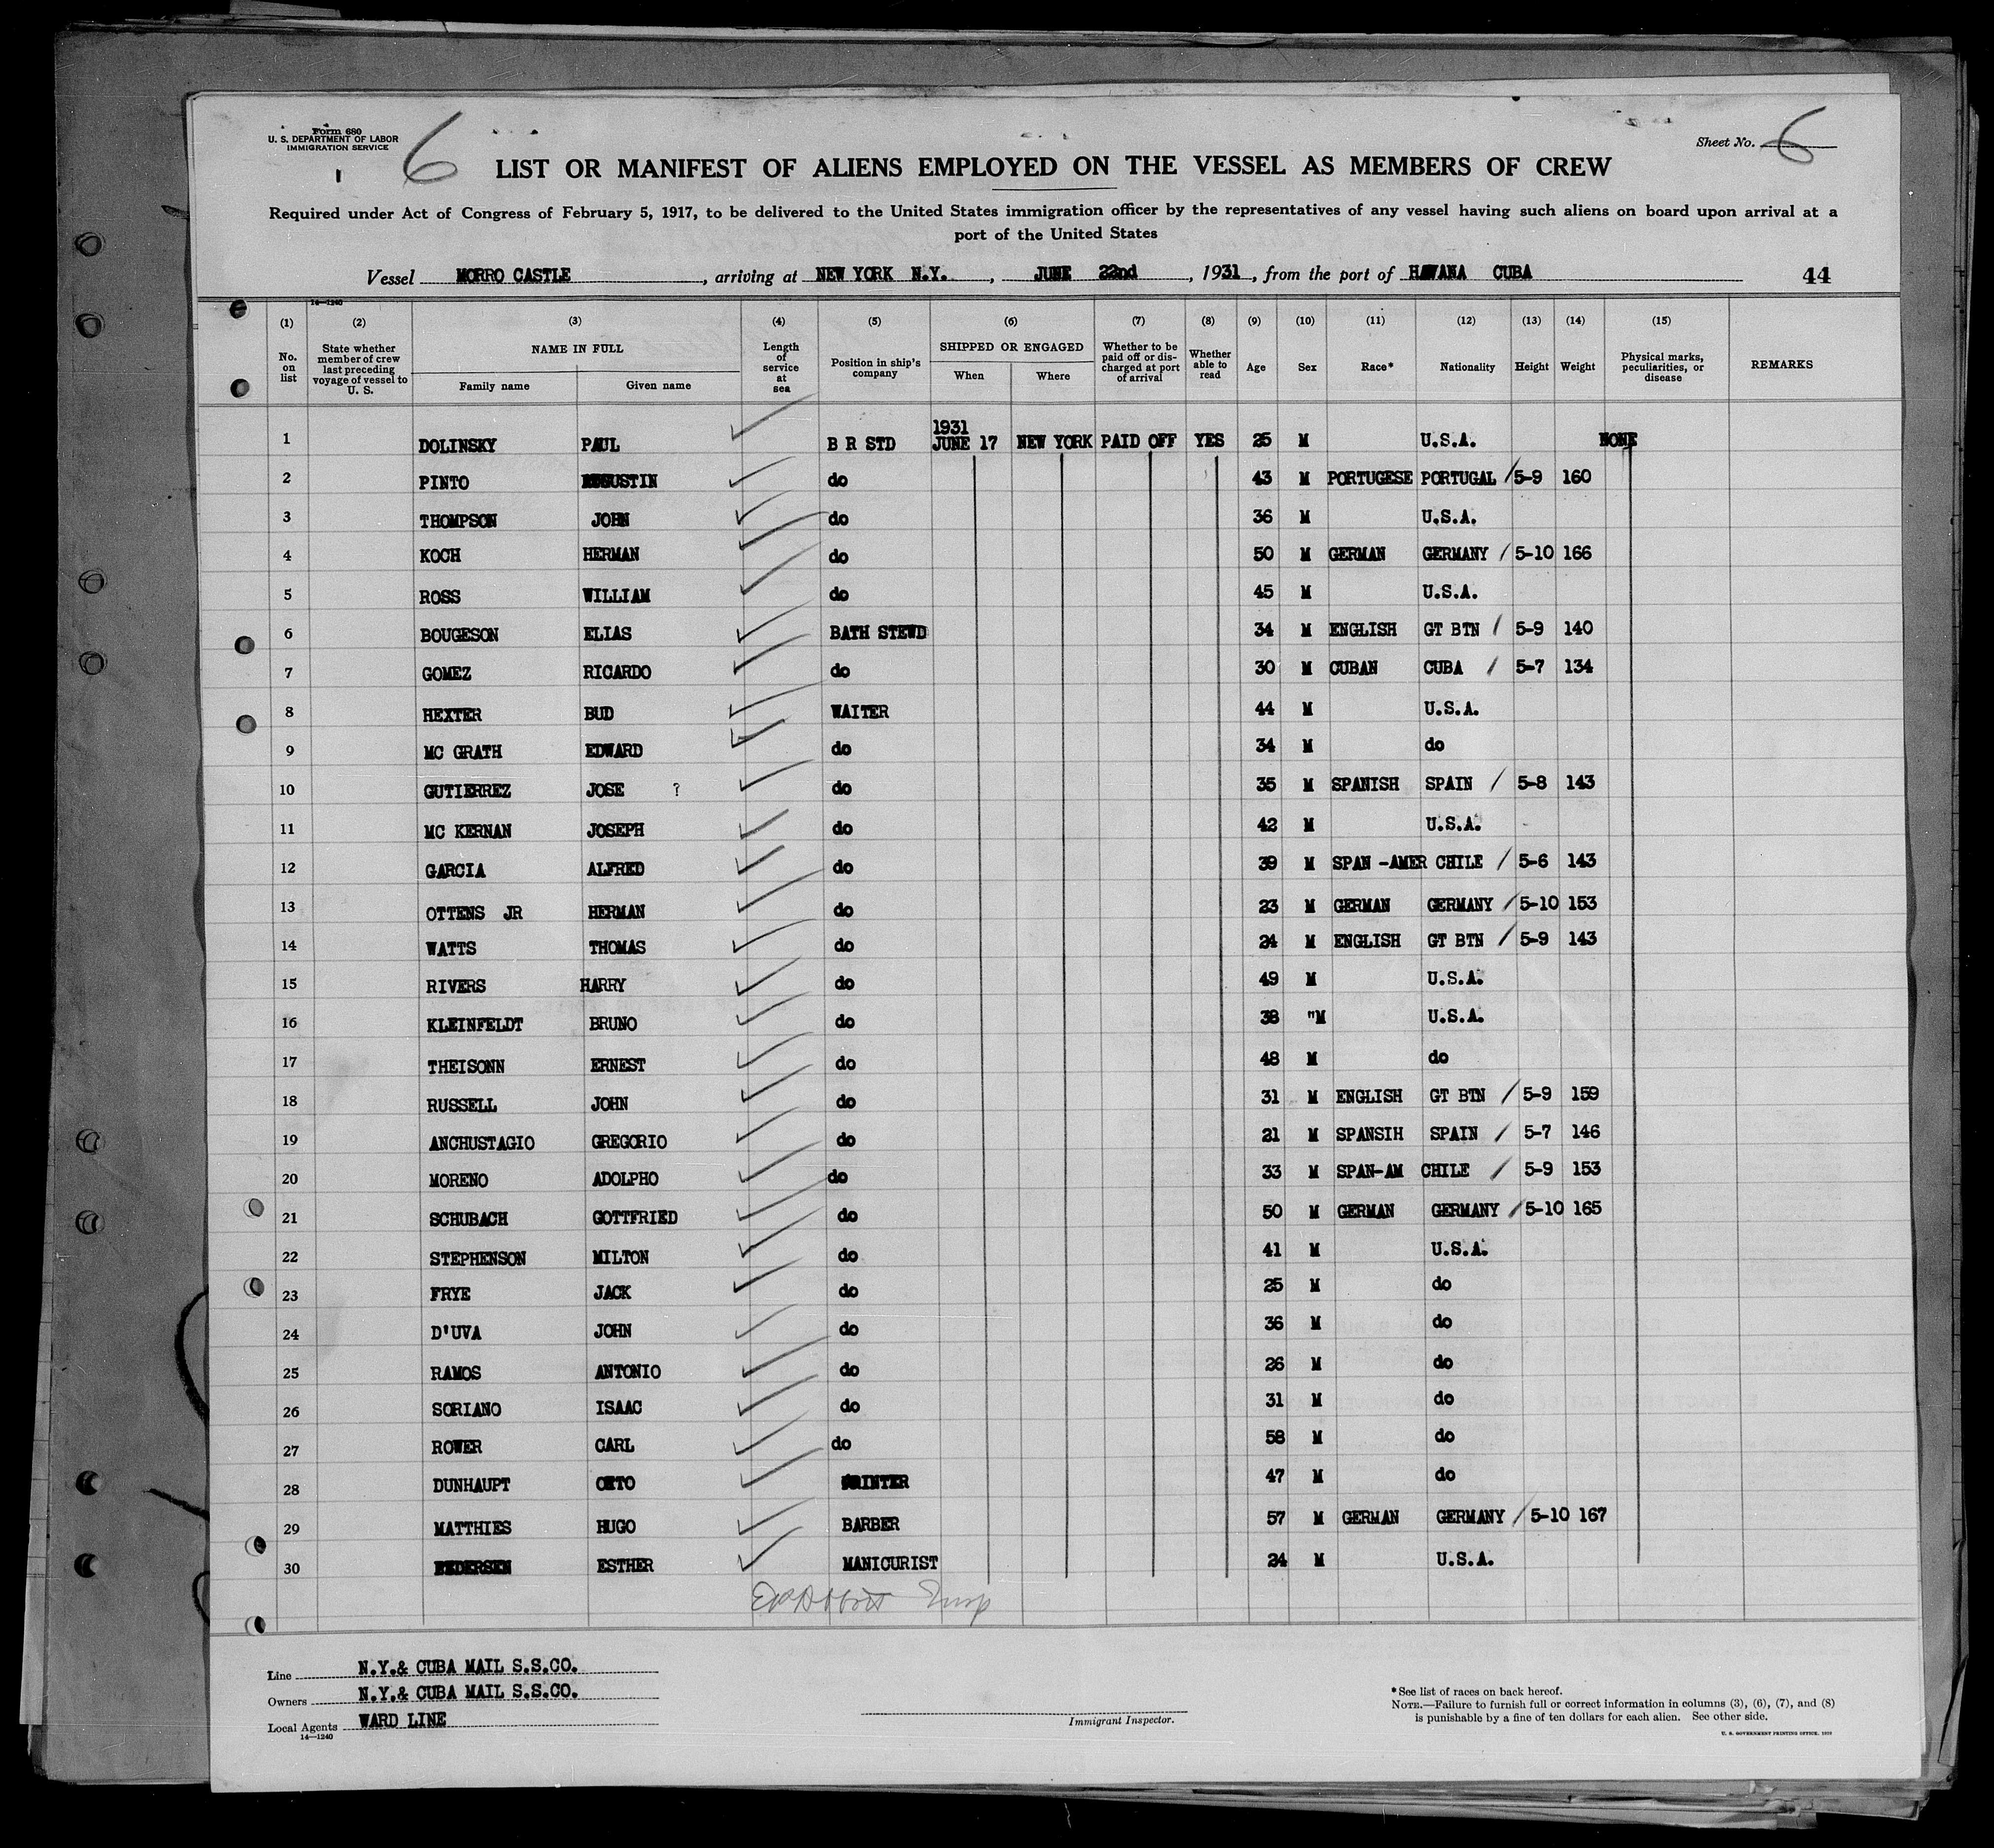 Form 680
U. S. DEPARTMENT OF LABOR
IMMIGRATION SERVICE
6
Sheet No. 6
LIST OR MANIFEST OF ALIENS EMPLOYED ON THE VESSEL AS MEMBERS OF CREW
Required under Act of Congress of February 5, 1917, to be delivered to the United States immigration officer by the representatives of any vessel having such aliens on board upon arrival at a
port of the United States
Vessel MORRO CASTLE, arriving at NEW YORK N.Y., JUNE 22nd, 1931, from the port of HAVANA CUBA 44
14—1240
(1) (2) (3) (4) (5) (6) (7) (8) (9) (10) (11) (12) (13) (14) (15)
No. on list State whether member of crew last preceding voyage of vessel to U. S. NAME IN FULL Family name Given name Length of service at sea Position in ship's company SHIPPED OR ENGAGED When Where Whether to be paid off or discharged at port of arrival Whether able to read Age Sex Race* Nationality Height Weight Physical marks, peculiarities, or disease REMARKS
1 DOLINSKY PAUL B R STD 1931 JUNE 17 NEW YORK PAID OFF YES 25 M U.S.A. NONE
2 PINTO AUGUSTIN do 43 M PORTUGESE PORTUGAL 5-9 160
3 THOMPSON JOHN do 36 M U.S.A.
4 KOCH HERMAN do 50 M GERMAN GERMANY 5-10 166
5 ROSS WILLIAM do 45 M U.S.A.
6 BOUGESON ELIAS BATH STEWD 34 M ENGLISH GT BTN 5-9 140
7 GOMEZ RICARDO do 30 M CUBAN CUBA 5-7 134
8 HEXTER BUD WAITER 44 M U.S.A.
9 MC GRATH EDWARD do 34 M do
10 GUTIERREZ JOSE ? do 35 M SPANISH SPAIN 5-8 143
11 MC KERNAN JOSEPH do 42 M U.S.A.
12 GARCIA ALFRED do 39 M SPAN -AMER CHILE 5-6 143
13 OTTENS JR HERMAN do 23 M GERMAN GERMANY 5-10 153
14 WATTS THOMAS do 24 M ENGLISH GT BTN 5-9 143
15 RIVERS HARRY do 49 M U.S.A.
16 KLEINFELDT BRUNO do 38 "M U.S.A.
17 THEISONN ERNEST do 48 M do
18 RUSSELL JOHN do 31 M ENGLISH GT BTN 5-9 159
19 ANCHUSTAGIO GREGORIO do 21 M SPANSIH SPAIN 5-7 146
20 MORENO ADOLPHO do 33 M SPAN-AM CHILE 5-9 153
21 SCHUBACH GOTTFRIED do 50 M GERMAN GERMANY 5-10 165
22 STEPHENSON MILTON do 41 M U.S.A.
23 FRYE JACK do 25 M do
24 D'UVA JOHN do 36 M do
25 RAMOS ANTONIO do 26 M do
26 SORIANO ISAAC do 31 M do
27 ROWER CARL do 58 M do
28 DUNHAUPT OTTO PRINTER 47 M do
29 MATTHIES HUGO BARBER 57 M GERMAN GERMANY 5-10 167
30 PEDERSEN ESTHER MANICURIST 24 M U.S.A.
Line N.Y.& CUBA MAIL S.S.CO.
Owners N.Y.& CUBA MAIL S.S.CO.
Local Agents WARD LINE
14—1240
Immigrant Inspector.
*See list of races on back hereof.
NOTE.—Failure to furnish full or correct information in columns (3), (6), (7), and (8)
is punishable by a fine of ten dollars for each alien. See other side.